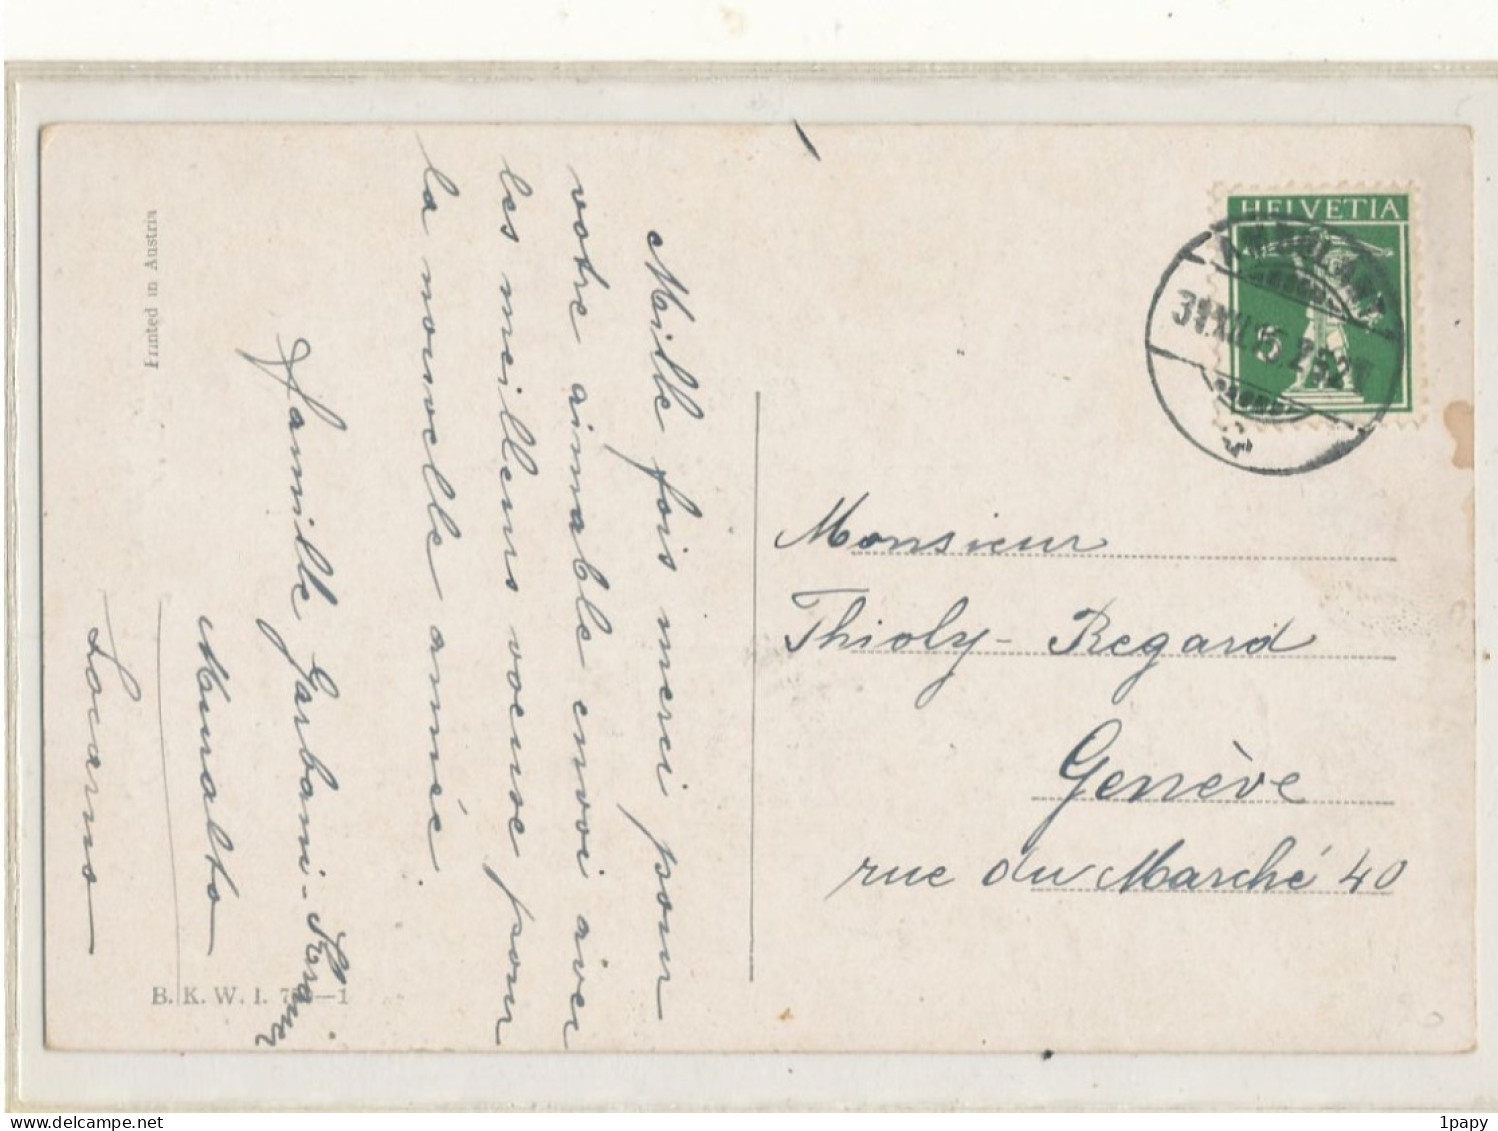 Mille fois merci pour
votre aimable envoi avec
les meilleurs voeux pour
la nouvelle année.
Famille Garbani-Kramer
Muralto
Locarno
Printed in Austria
B. K. W. I. —1
HELVETIA
31.XII.15
Monsieur
Thioly-Regard
Genève
rue du Marché 40
1papy